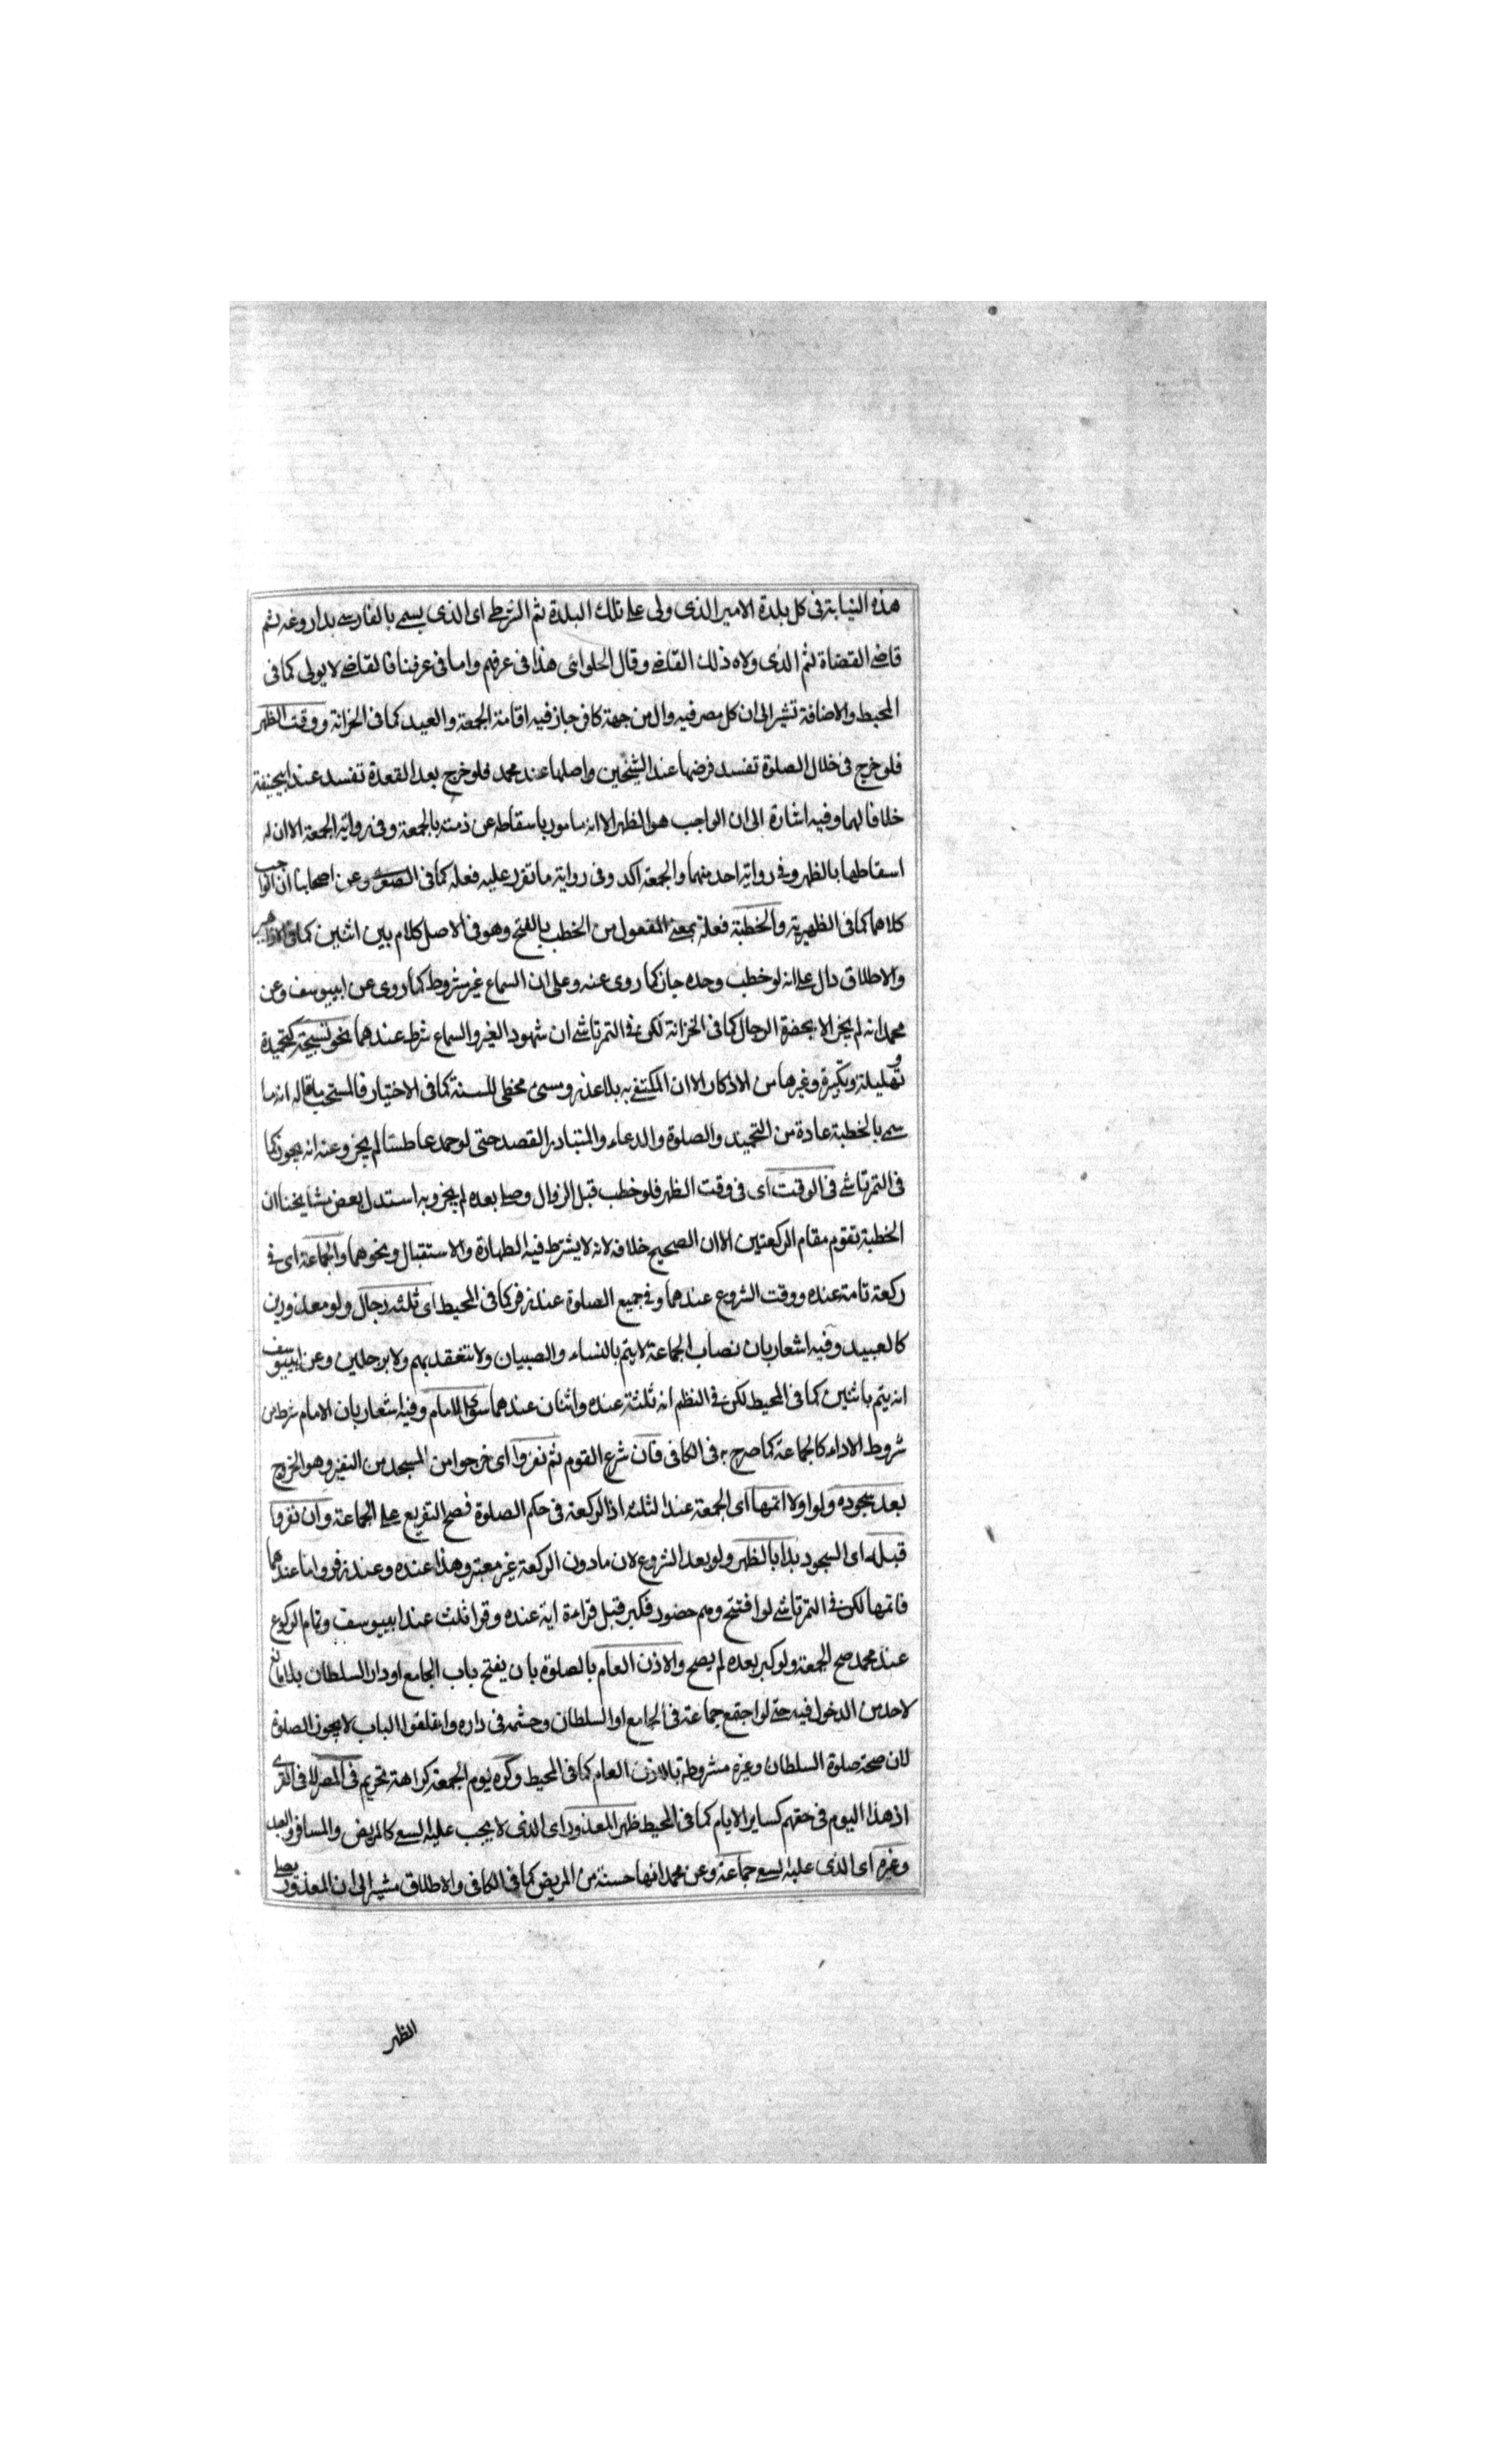 هذه النيابة فى كل بلدة الامير الذى ولى على تلك البلدة ثم الشرطى اى الذى يسمى بالفارسى بداروغه ثم
قاضى القضاة ثم الذى ولاه ذلك القاضى وقال الحلوائى هذا فى عرفهم واما فى عرفنا فالقاضى لا يولى كما فى
المحيط والاضافة تشير الى ان كل مصر فيه وال من جهة كافر جاز فيه اقامة الجمعة والعيد كما فى الخزانة ووقت الظهر
فلو خرج فى خلال الصلوة تفسد فرضها عند الشيخين واصلها عند محمد فلو خرج بعد القعدة تفسد عند ابيحنيفة
خلافا لهما وفيه اشارة الى ان الواجب هو الظهر الا انه مامور باسقاطه عن ذمته بالجمعة وفى رواية الجمعة الا ان له
اسقاطها بالظهر وفى رواية احد منهما والجمعة اكد وفى رواية ما تقرر عليه فعله كما فى وعن اصحابنا ان الواجب
كلاهما كما فى الظهيرية والخطبة فعلة بمعنى المفعول من الخطب بالفتح وهو فى الاصل كلام بين اثنين كما فى
والاطلاق دال على انه لو خطب وحده جاز كما روى عنه وعلى ان السماع غير مشروط كما روى عن ابييوسف وعن
محمد انه لم يجز الا بحضرة الرجال كما فى الخزانة لكن فى التمرتاشى ان شهود الغير والسماع شرط عندهما نحو تسبيحة كتحميدة
وتهليلة وتكبيرة وغيرها من الاذكار الا ان المكتفى به بلا عذر ومسىء مخطى للسنة كما فى الاختيار فالمستحب ما قاله انه ما
سمى بالخطبة عادة من التحميد والصلوة والدعاء والمتبادر القصد حتى لو حمد عاطسا لم يجز وعنه انه يجوز كما
فى التمرتاشى فى الوقت اى فى وقت الظهر فلو خطب قبل الزوال وصلى بعده لم يجز وبه استدل بعض مشايخنا ان
الخطبة تقوم مقام الركعتين الا ان الصحيح خلافه لانه لا يشترط فيه الطهارة والاستقبال ونحوهما والجماعة اى فى
ركعة تامة عنده ووقت الشروع عندهما وفى جميع الصلوة عند زفر كما فى المحيط اى ثلثة رجال ولو معذورين
كالعبيد وفيه اشعار بان نصاب الجماعة لا يتم بالنساء والصبيان ولا تنعقد بهم ولا برجلين وعن ابييوسف
انه يتم باثنين كما فى المحيط لكن فى النظم انه ثلثة عنده واثنان عندهما سوى الامام وفيه اشعار بان الامام شرط من
شروط الاداء كالجماعة كما صرح به فى الكافى فان شرع القوم ثم نفروا اى خرجوا من المسجد من النفير وهو الخروج
بعد سجوده ولو اولا اتمها اى الجمعة عند الثلثة اذ الركعة فى حكم الصلوة فصح التفريع على الجماعة وان نفروا
قبله اى السجود بدا بالظهر ولو بعد الشروع لان ما دون الركعة غير معتبر وهذا عنده وعند زفر واما عندهما
فاتمها لكن فى التمرتاشى لو افتتح وهم حضور فكبر قبل قراءة اية عنده وقرا ثلث عند ابييوسف وتمام الركوع
عند محمد صح الجمعة ولو كبر بعده لم يصح والاذن العام بالصلوة بان يفتح باب الجامع او دار السلطان بلا مانع
لاحد من الدخول فيه حتى لو اجتمع جماعة فى الجامع او السلطان وحشمه فى داره واغلقوا الباب لا يجوز الصلوة
لان صحة صلوة السلطان وغيره مشروطة بالاذن العام كما فى المحيط وكره يوم الجمعة كراهة تحريم فى المصر لا فى القرى
اذ هذا اليوم فى حقهم كساير الايام كما فى المحيط ظهر المعذور اى الذى لا يجب عليه السعى كالمريض والمسافر والعبد
وغيره اى الذى عليه السعى جماعة وعن محمد انها حسنة من المريض كما فى الكافى والاطلاق مشير الى ان المعذور يصلى
الظهر